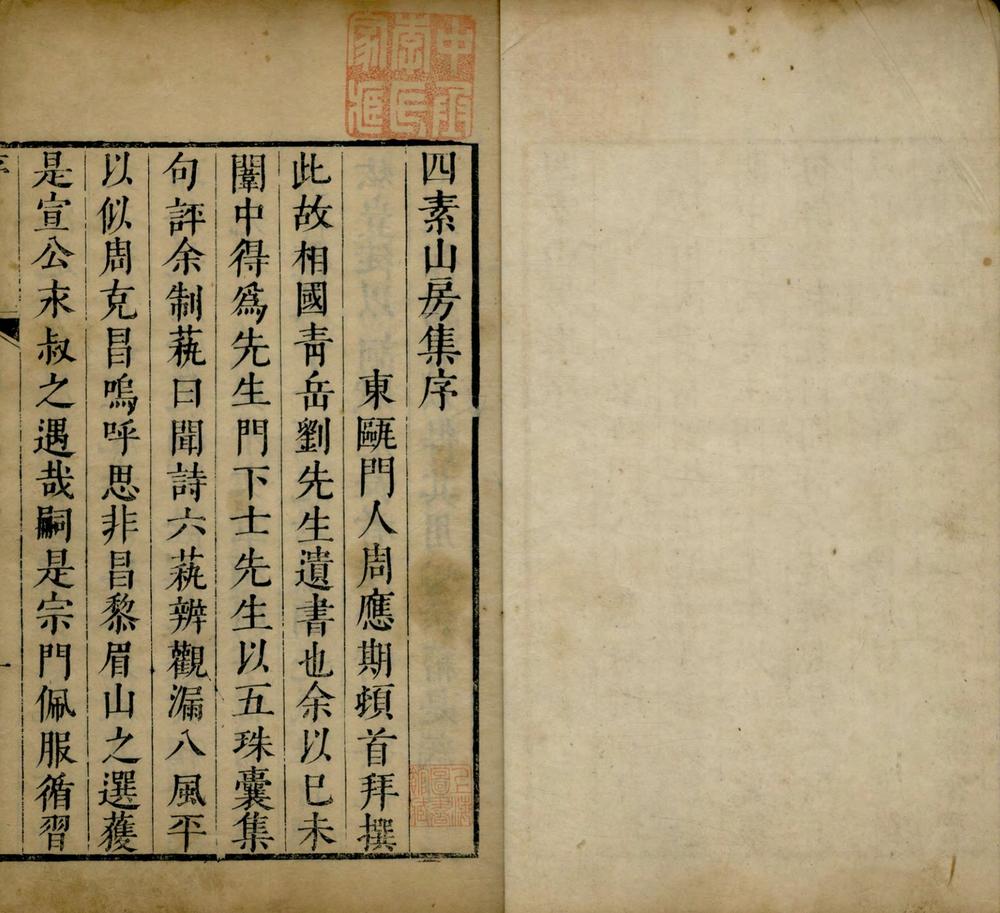 四素山房集序
東甌門人周應期頓首拜撰
此故相國靑岳劉先生遺書也余以巳未
闈中得爲先生門下士先生以五珠囊集
句評余制蓺曰聞詩六蓺辨觀漏八風平
以似周克昌嗚呼思非昌黎眉山之選獲
是宣公永叔之遇哉嗣是宗門佩服循習
序
一